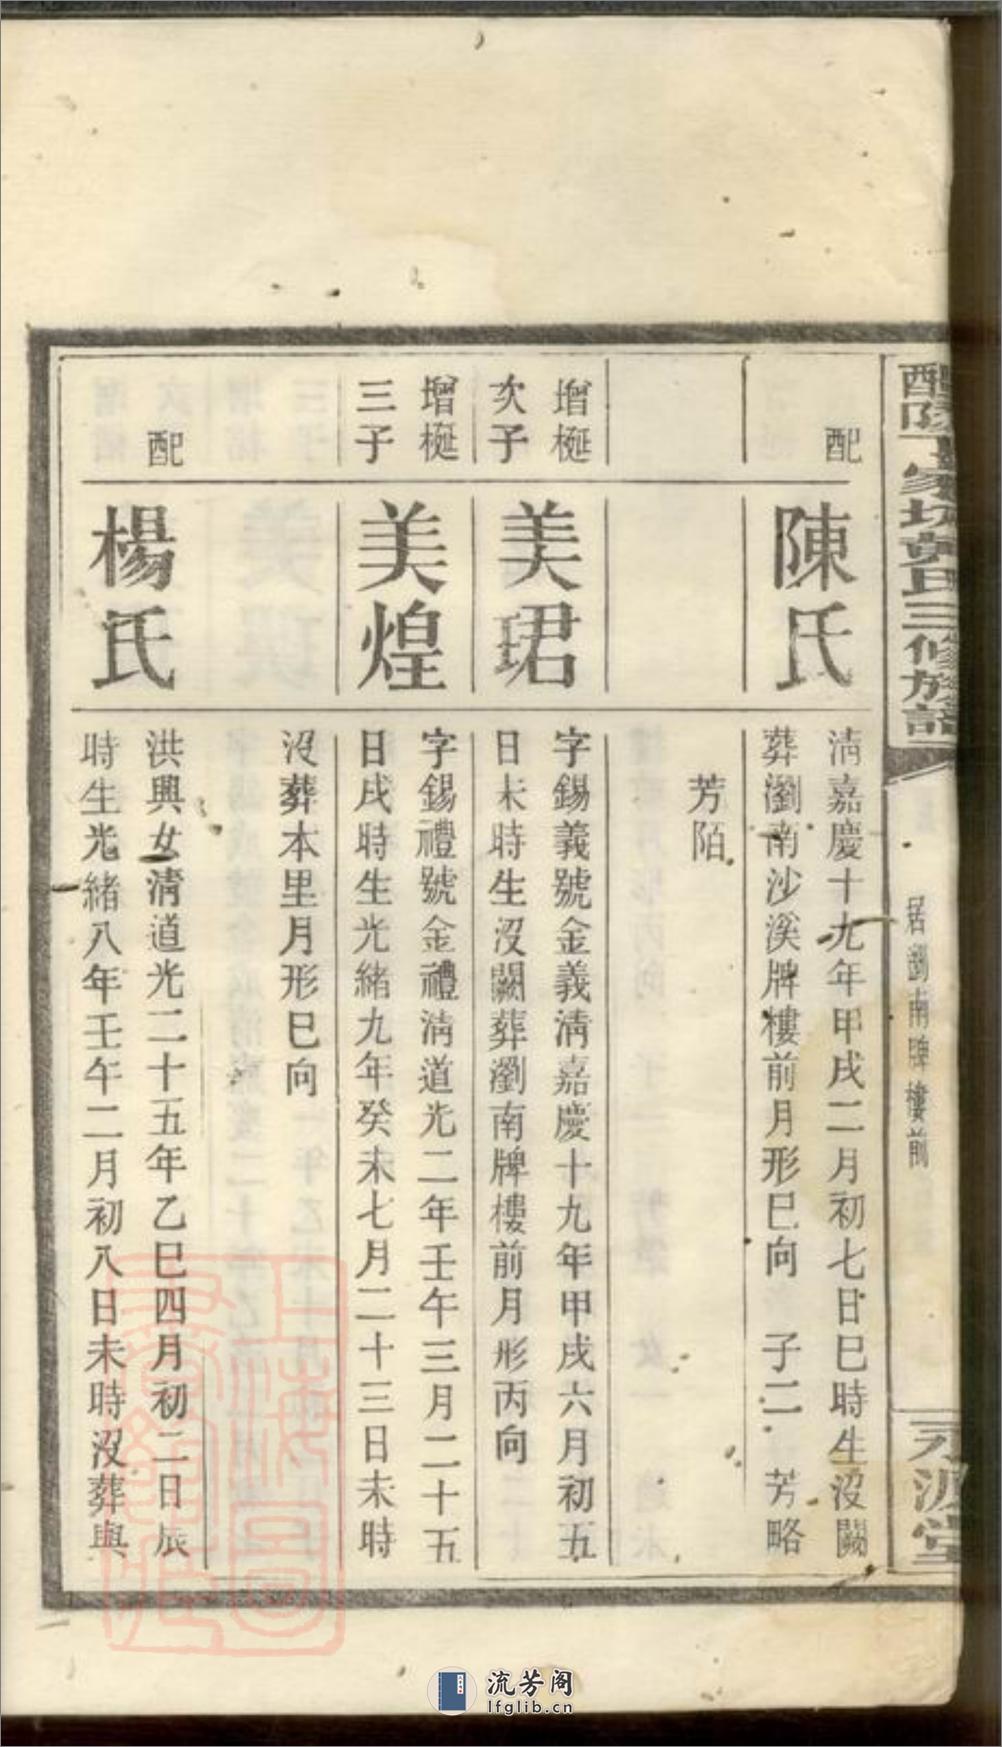 醴陵丁家坊黃氏三修族譜
居瀏南牌樓前
永源堂
配
陳氏
淸嘉慶十九年甲戌二月初七日巳時生沒闕
葬瀏南沙溪牌樓前月形巳向 子二 芳略
芳陌
增梃
次子
美珺
字錫義號金義淸嘉慶十九年甲戌六月初五
日未時生沒闕葬瀏南牌樓前月形丙向
增梃
三子
美煌
字錫禮號金禮淸道光二年壬午三月二十五
日戌時生光緒九年癸未七月二十三日未時
沒葬本里月形巳向
配
楊氏
洪興女淸道光二十五年乙巳四月初二日辰
時生光緒八年壬午二月初八日未時沒葬與
流芳阁
lfglib.cn